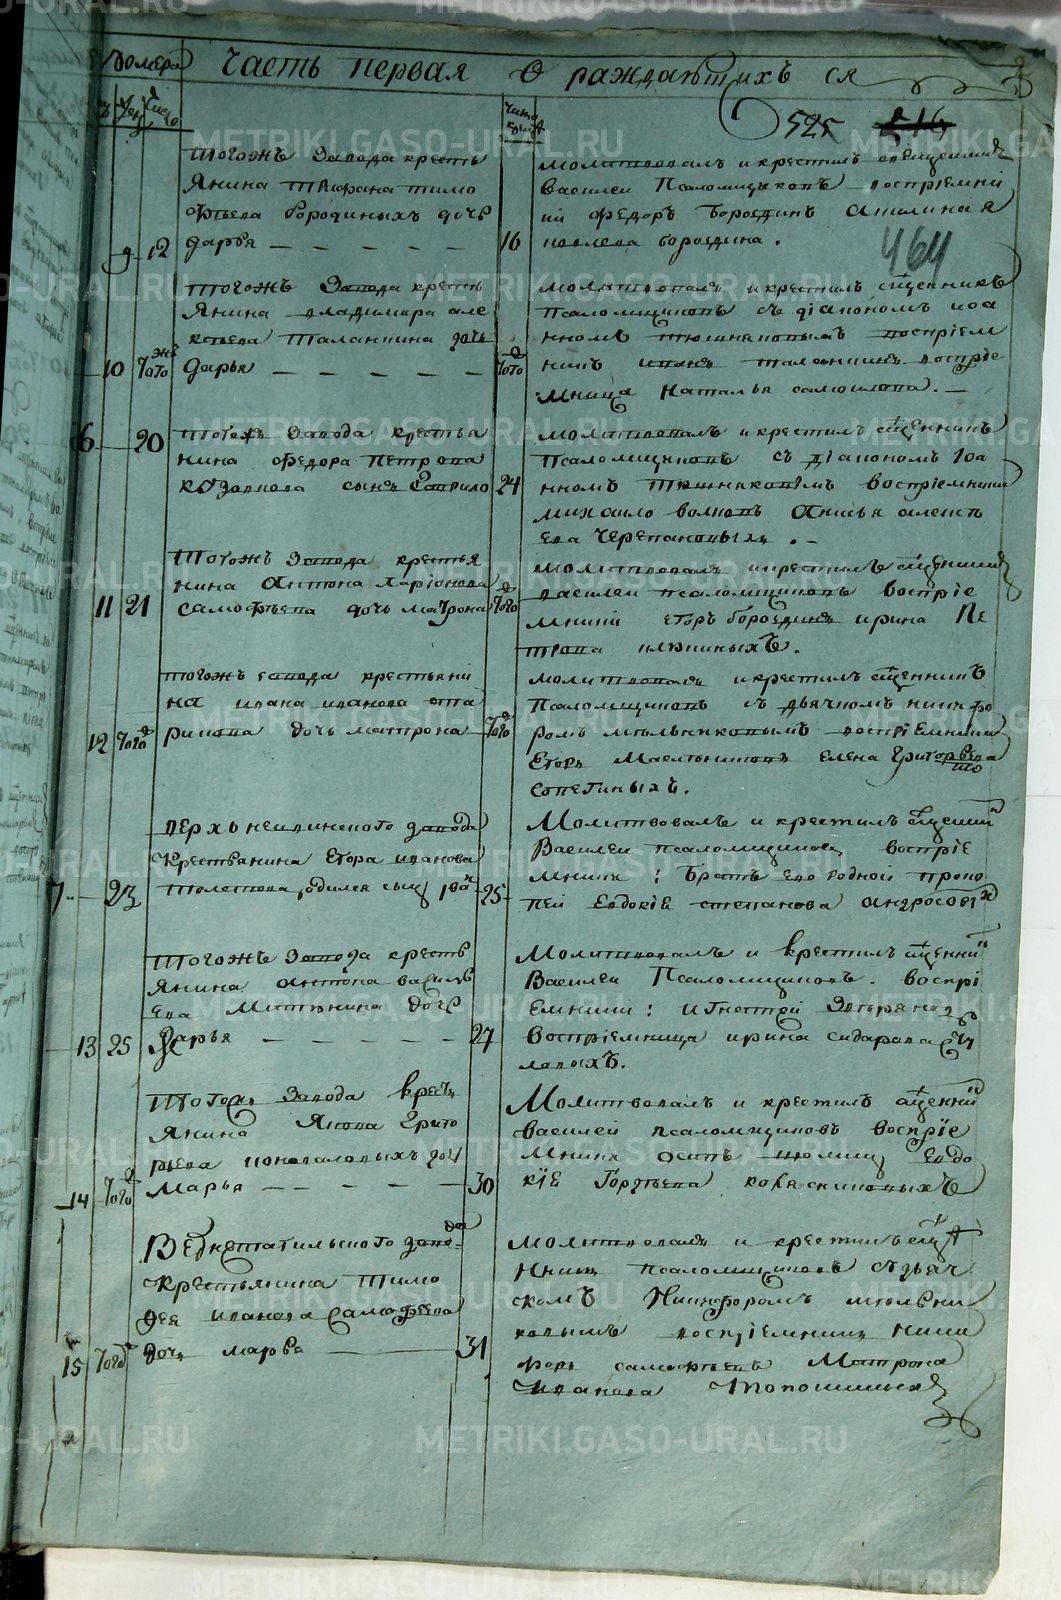 номера Часть первая О раждаюшихъ ся
число
525 516
464
9 12
тогожъ Завода кресть
янина трифана тимо
фѣева бородиныхъ дочь
дарья
16
молитвовалъ и крестилъ священникъ
василеи Псаломщиковъ восприемни
ий федоръ бороздинъ
павлева бороздина.
10 тогожъ
тогожъ Завода кресть
янина владимира але
ксѣева Таланкина дочь
дарья
того
молитвовалъ и крестилъ сщенникъ
Псаломщиковъ съ діакономъ іоа
нномъ восприем
никъ иванъ таланкинъ воспріе
мница Наталья самоилова.
6 20
тогожъ Завода крестья
нина федора петрова
козлова сынъ Гаврило
24
молитвовалъ и крестилъ сщенникъ
Псаломщиковъ съ діакономъ Іоа
нномъ воспріемники
михаило волковъ Анисья алекс
ева Черепановыхъ.
11 21
тогожъ Завода крестья
нина Антона ларіонова
самофѣева дочь матрона
того
молитвовалъ и крестилъ сщенникъ
василеи псаломщиковъ воспріе
мники егоръ бороздинъ ирина Пе
трова
12 того
тогожъ завода крестьяни
на ивана иванова
дочь матрона
того
молитвовалъ и крестилъ сщенникъ
Псаломщиковъ съ дьячкомъ никифо
ромъ мѣльниковымъ воспріемники
Егоръ Масленниковъ елена Григорьева
сопегиныхъ.
7 23
верхъ нейвинского завода
крестьянина Егора иванова
толстова родился сынъ іванъ
25
Молитвовалъ и крестилъ сщенникъ
Василеи псаломщиковъ воспріе
мники: братъ ево родной проко
пей Евдокія степанова
13 25
тогожъ Завода кресть
янина антона василь
ева Митькина дочь
Дарья
27
Молитвовалъ и крестилъ сщенникъ
Василеи Псаломщиковъ. воспрі
емники: игнатей
воспріемница ирина сидарова
14 того
тогожъ Завода кресть
янина Якова Григо
рьева коноваловыхъ дочь
марья
30
Молитвовалъ и крестилъ сщенникъ
василей псаломщиковъ воспріе
мники осипъ Евдо
кія Гордѣева коряскиновыхъ
15 того
Верхнетагильского завода
крестьянина Тимо
фея иванова самофеева
дочь марва
31
молитвовалъ и крестилъ сще
нникъ псаломщиковъ съ дьяч
комъ Никифоромъ мѣльни
ковымъ воспріемники ники
форъ самофѣевъ Матрона
Иванова Топоринская
METRIKI.GASO-URAL.RU